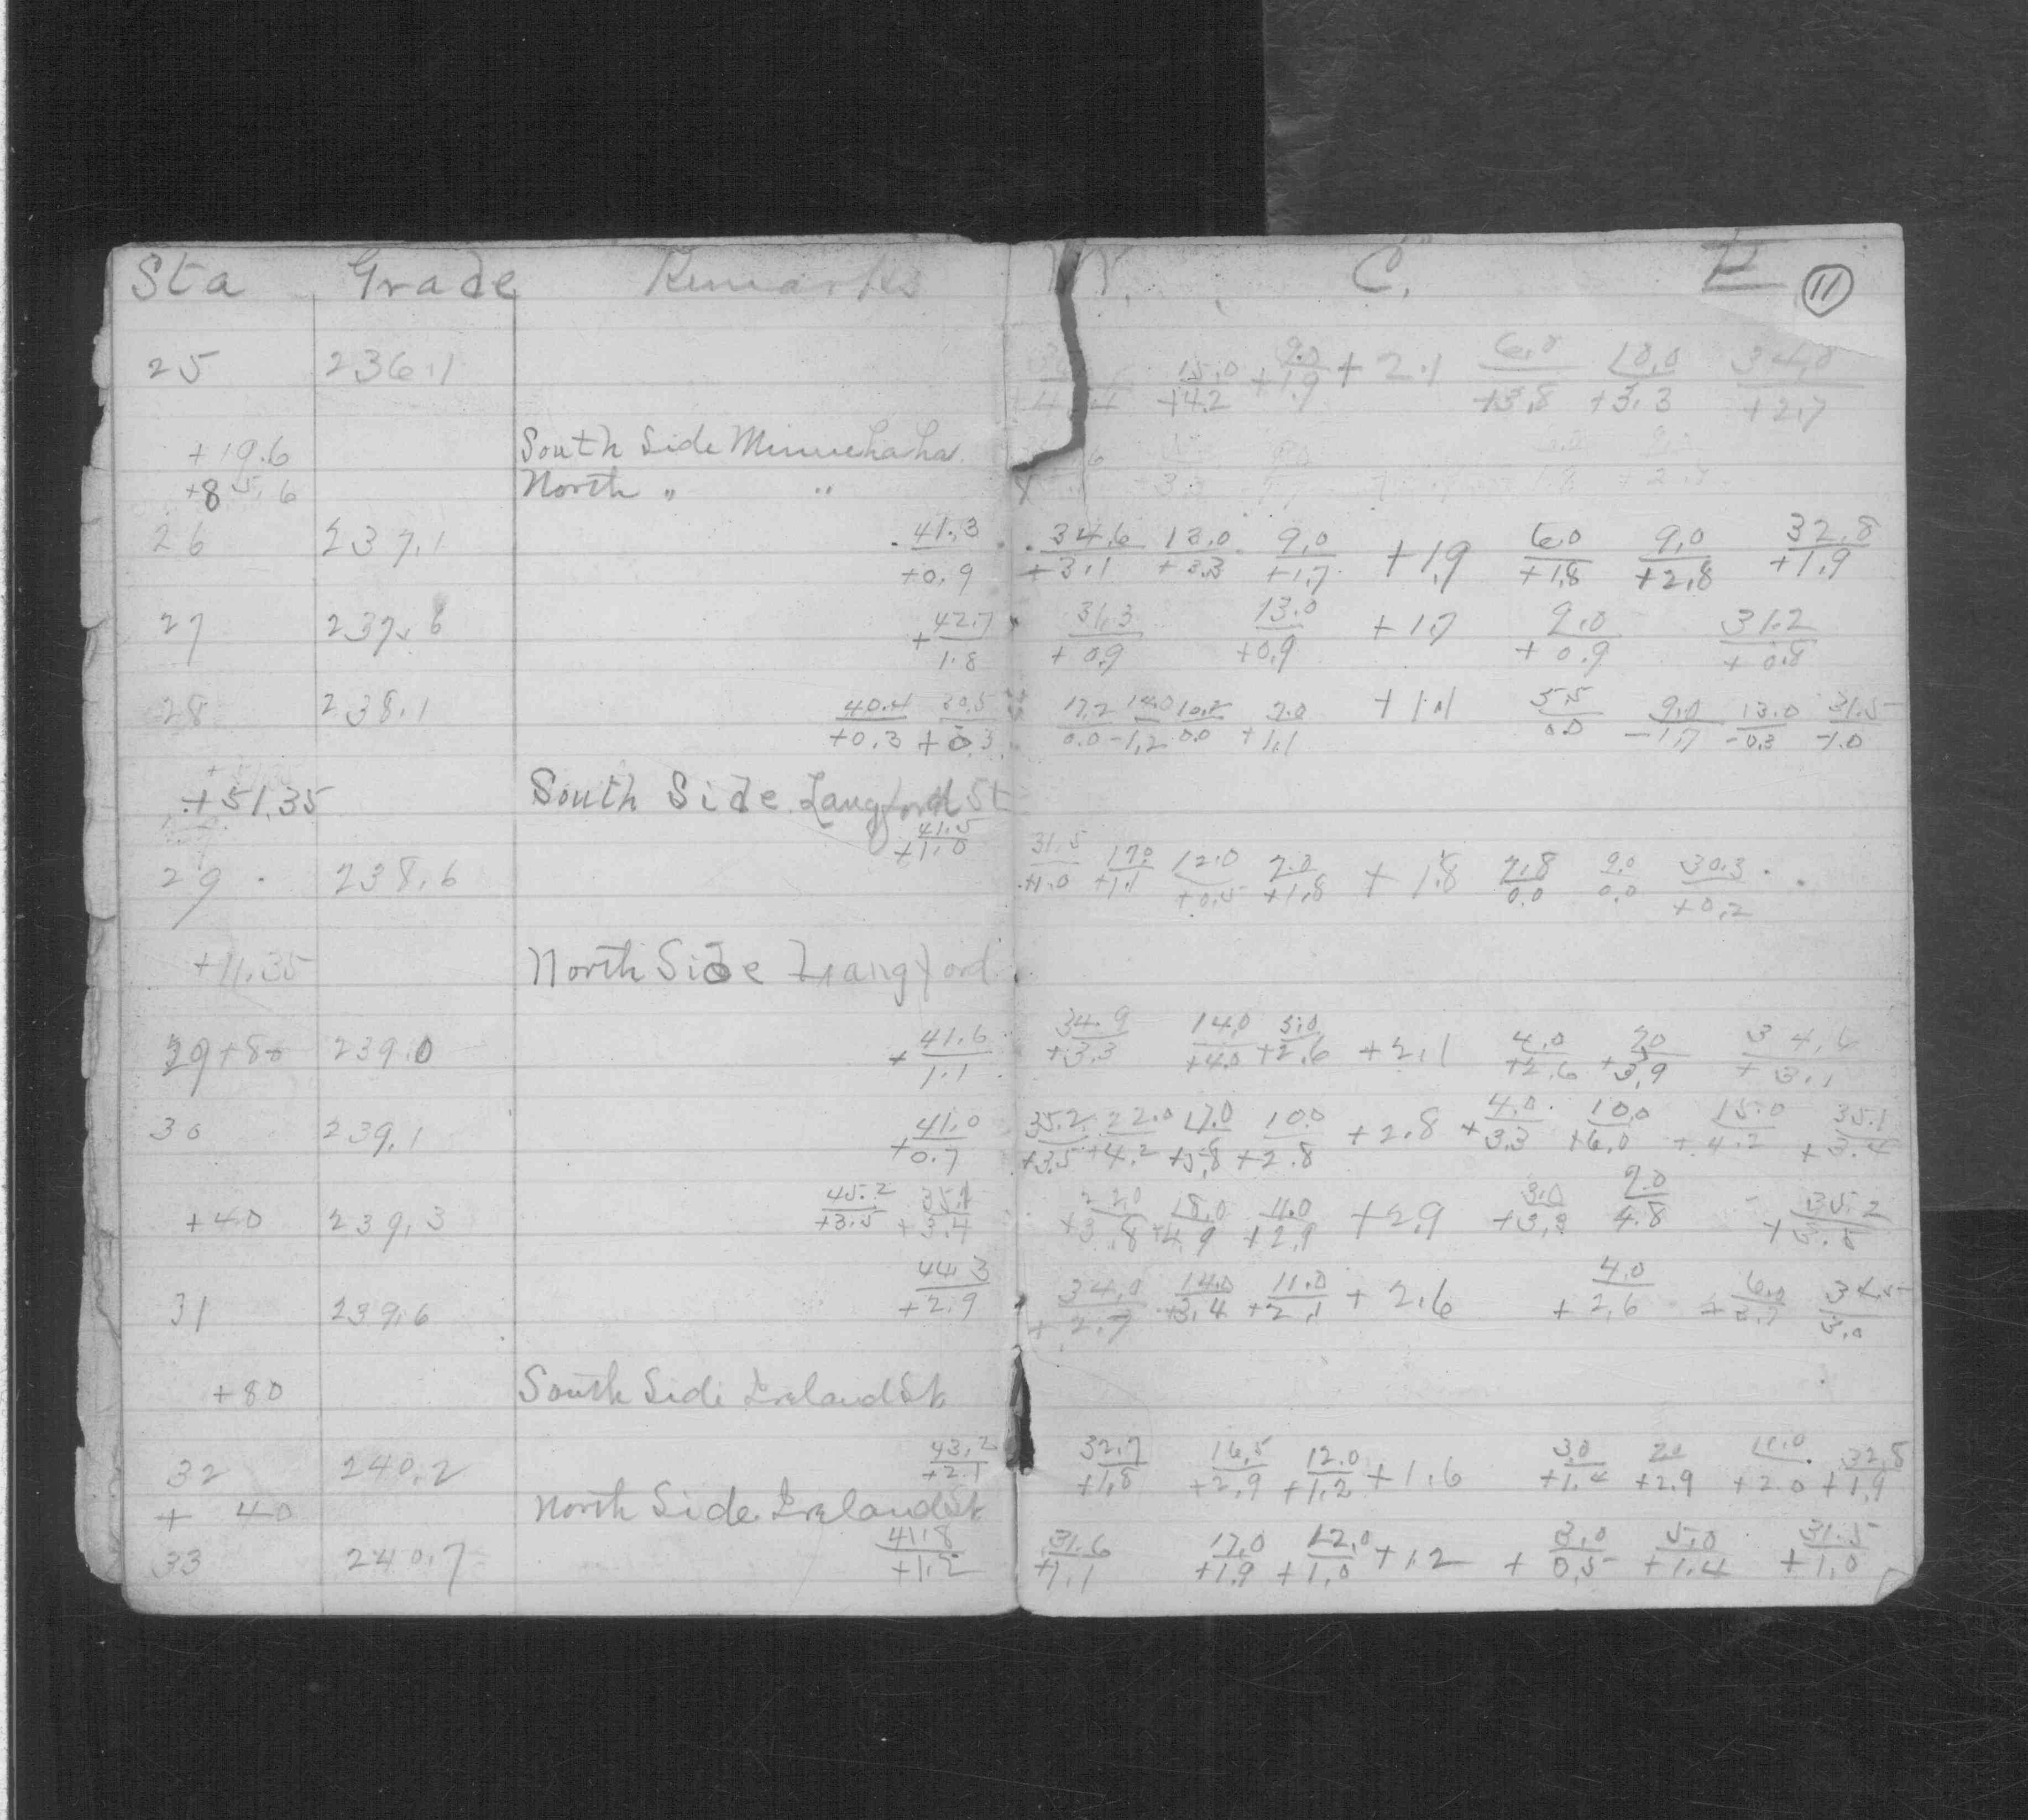 Sta Grade Remarks W. C. E 11
25 236.1 15.0/+4.2 9.0/+1.9 +2.1 6.0/+3.8 10.0/+3.3 34.0/+2.7
+19.6 South Side Minnehaha
+85.6 North " "
26 237.1 41.3/+0.9 34.6/+3.1 13.0/+3.3 9.0/+1.7 +1.9 6.0/+1.8 9.0/+2.8 32.8/+1.9
27 237.6 +42.7/1.8 31.3/+0.9 13.0/+0.9 +1.7 9.0/+0.9 31.2/+0.8
28 238.1 40.4/+0.3 30.5/+0.3 17.2/0.0 14.0/-1.2 10.2/0.0 7.0/+1.1 +1.1 5.5/0.0 9.0/-1.7 13.0/-0.3 31.5/-1.0
+51.35 South Side Langford St
29 238.6 41.5/+1.0 31.5/+1.0 17.0/+1.1 12.0/+0.5 7.0/+1.8 +1.8 7.8/0.0 9.0/0.0 30.3/+0.2
+11.35 North Side Langford
29+80 239.0 +41.6/1.1 34.9/+3.3 14.0/+4.0 5.0/+2.6 +2.1 4.0/+2.6 20/+3.9 34.6/+3.1
30 239.1 +41.0/0.7 35.2/+3.5 22.0/+4.2 17.0/+5.8 10.0/+2.8 +2.8 +4.0/3.3 10.0/+6.0 15.0/+4.2 35.1/+3.4
+40 239.3 45.2/+3.5 35.1/+3.4 22.0/+3.8 18.0/+4.9 11.0/+2.9 +2.9 3.0/+3.3 9.0/4.8 35.2/+3.5
31 239.6 44.3/+2.9 34.0/+2.7 14.0/+3.4 11.0/+2.1 +2.6 4.0/+2.6 6.0/+3.7 34.5/3.0
+80 South Side Ireland St
32 240.2 43.2/+2.1 32.7/+1.8 16.5/+2.9 12.0/+1.2 +1.6 3.0/+1.4 20/+2.9 11.0/+2.0 32.8/+1.9
+ 40 North Side Ireland St
33 240.7 41.8/+1.2 31.6/+1.1 17.0/+1.9 12.0/+1.0 +1.2 +3.0/0.5 5.0/+1.4 31.5/+1.0